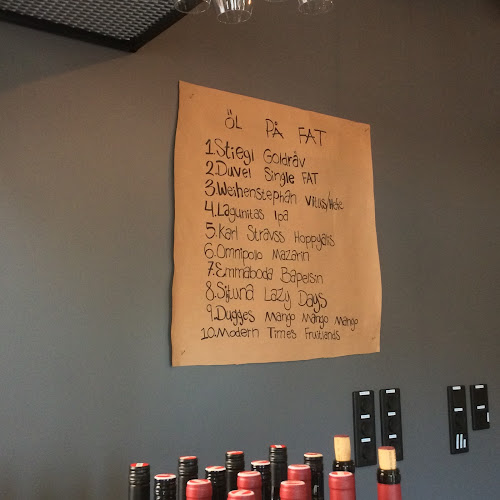 ÖL PÅ FAT
1. Stiegl Goldräv
2. Duvel Single FAT
3. Weihenstephan Vitus/Hefe
4. Lagunitas Ipa
5. Karl Strauss Hoppyais
6. Omnipollo Mazarin
7. Emmaboda Bapelsin
8. Sijtuna Lazy Days
9. Dugges Mango Mango Mango
10. Modern Times Fruitlands